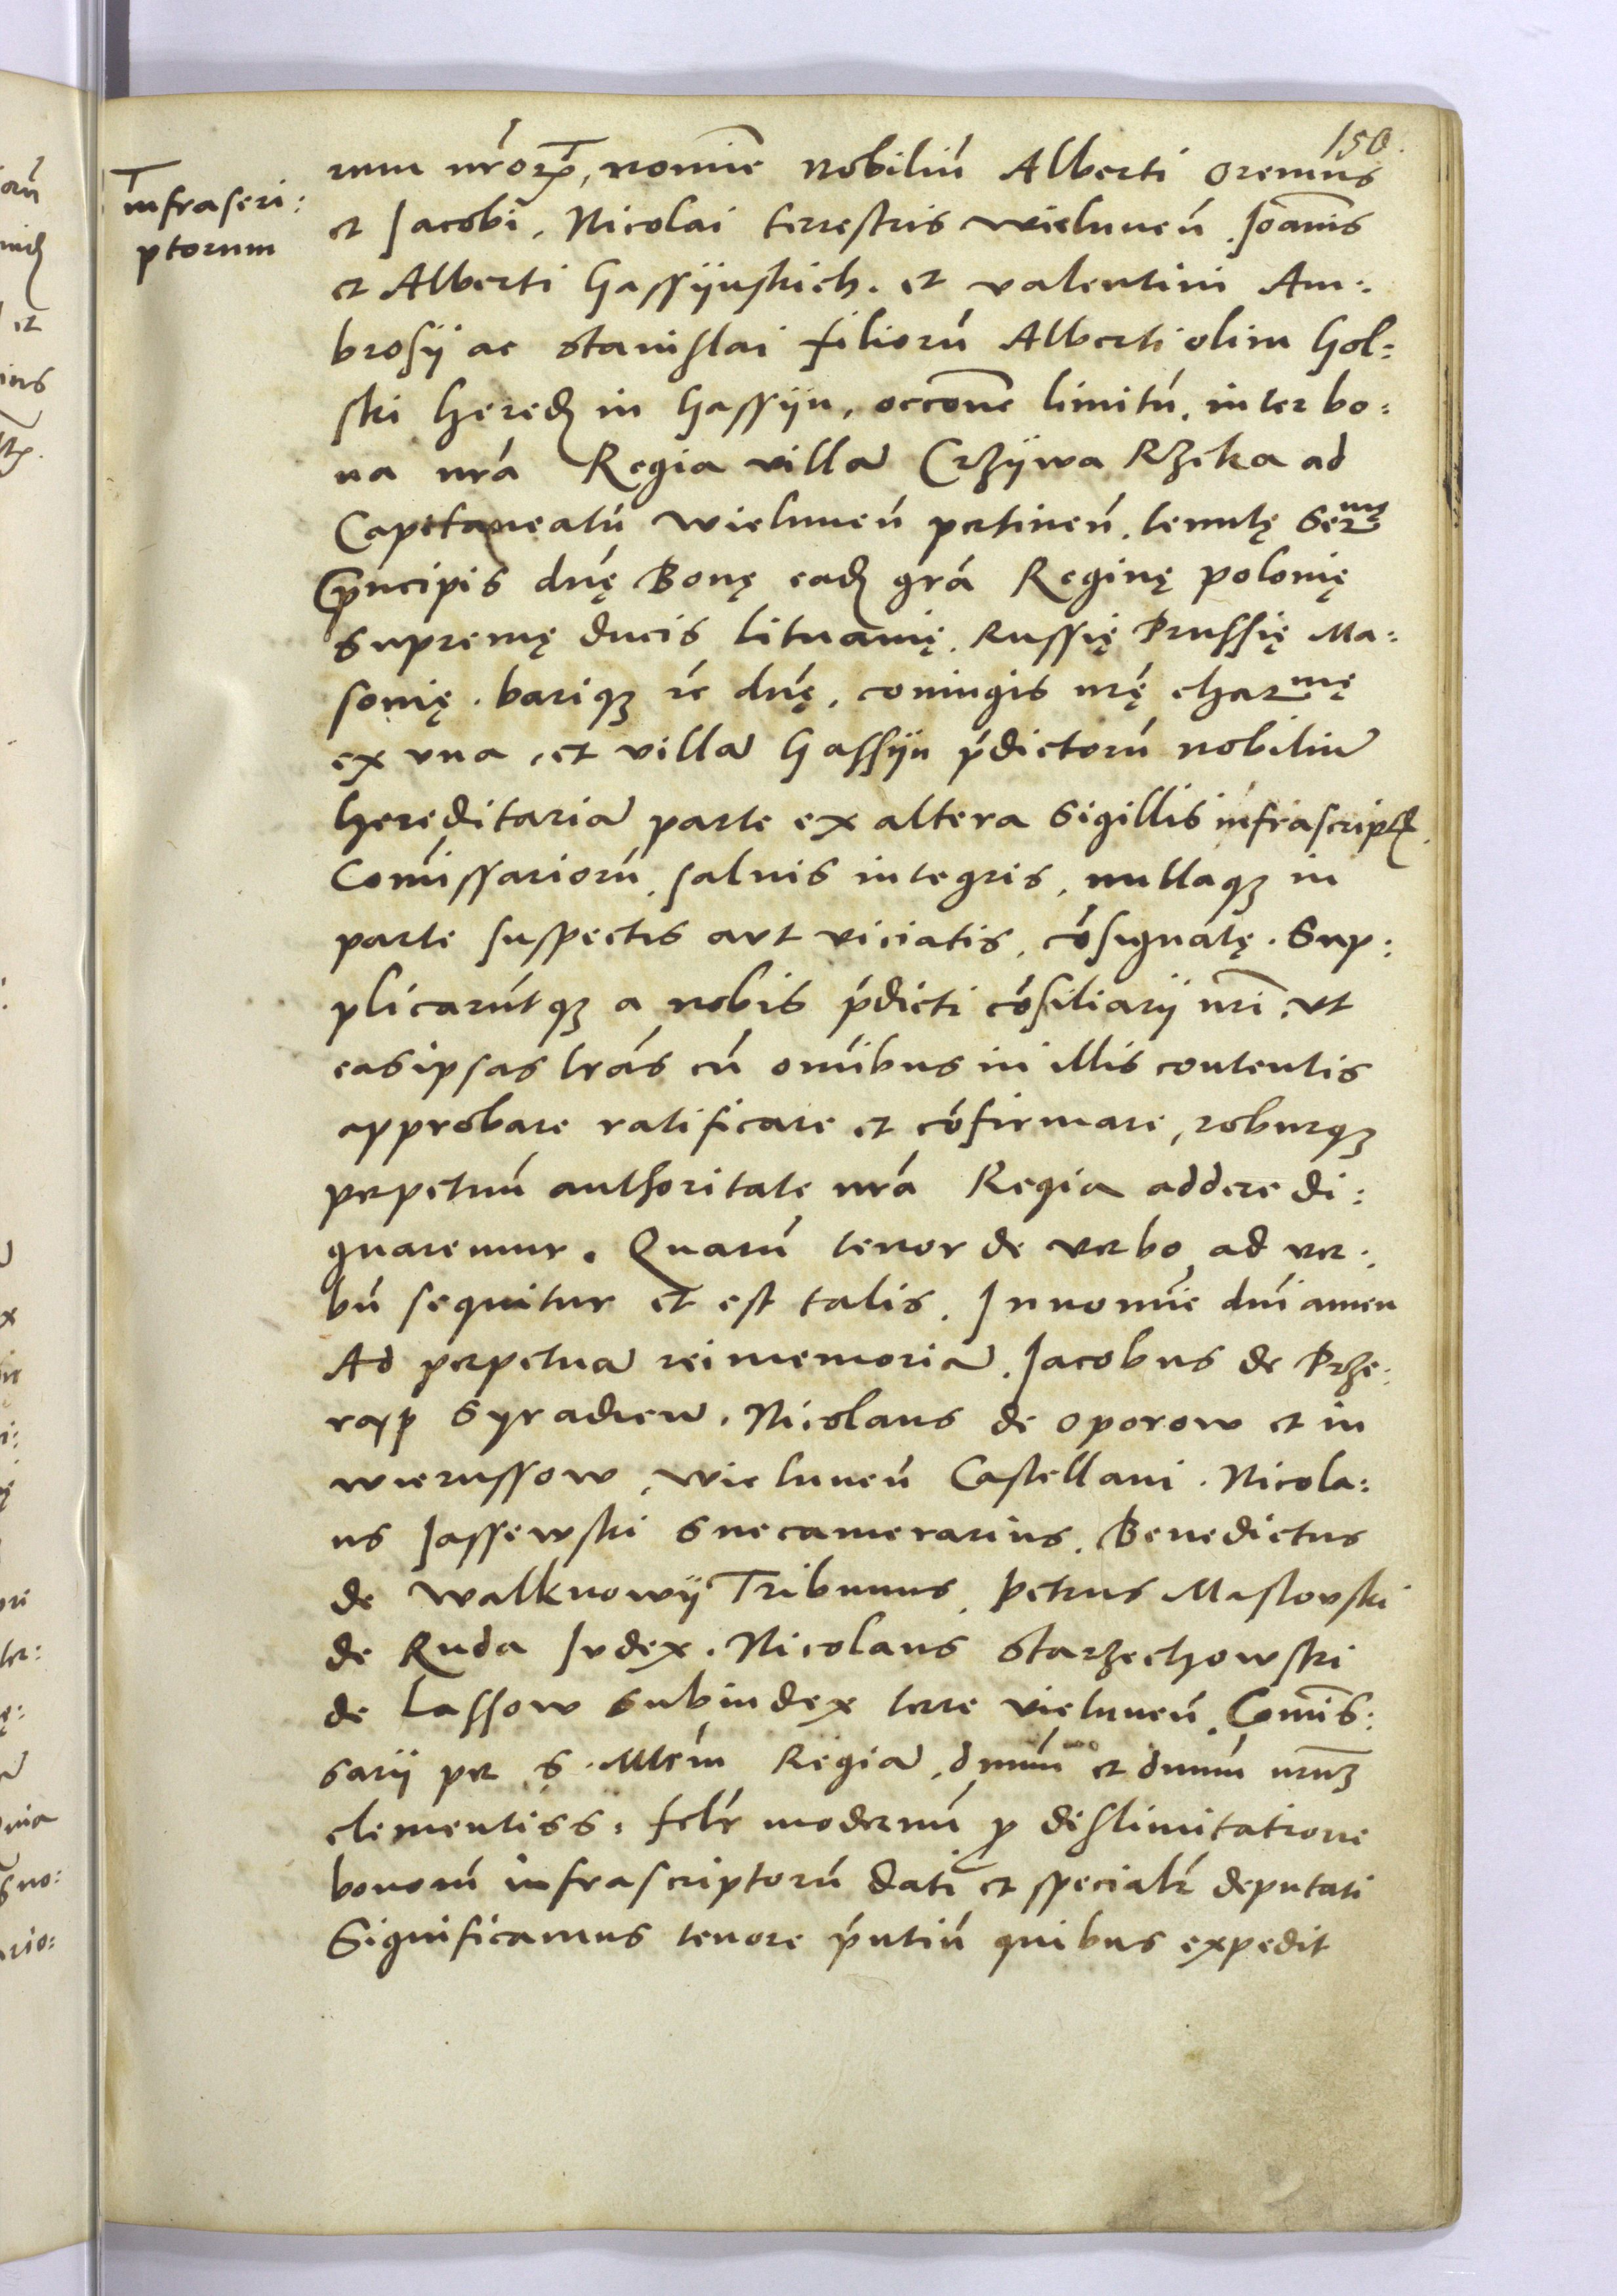 150.
infrascri:
ptorum
rum nr̃orꝫ, nomĩe Nobiliũ Alberti Oremus
et Jacobi, Nicolai terrestris wielunen̄. Joañis
et Alberti Gassÿnskich. et valentini Am:
brosÿ ac Stanislai filiorũ Alberti olim Gol:
ski Hered̃ in Gassÿn, occõne limitũ, inter bo:
na nr̃a Regia villã Crzÿwa Rzeka ad
Capitaneatũ wielunen̄ pertinen̄. tenutę Ser.mę
Principis dnę̃ Bonę ead̃ gr̃a Reginę polonię
Supremę ducis lituanię, Russię Prussię Ma:
sonię. bariqꝫ ꝛc̃ dnę̃, coniugis nr̃ę char.mę
ex una, et villã Gassÿn p̃dictorũ nobiliũ
hereditariã parte ex altera Sigillis infrascript̃.
Com̃issariorũ, saluis integris, nullaqꝫ in
parte suspectis aut viciatis, cõsignatę. Sup:
plicarũtqꝫ a nobis p̃dicti cõsiliarÿ nr̃i, ut
eas ipsas lr̃as cũ om̃ibus in illis contentis
approbare ratificare et cõfirmare, roburqꝫ
perpetuũ authoritate nr̃a Regia addere di:
gnaremur. Quarũ tenor de verbo ad ver:
bũ sequitur et est talis. In nomĩe dñi amen
Ad perpetuã rei memoriã. Jacobus de Prze:
Syradien̄. Nicolaus de Oporow et in
wierussow, wielunen̄ Castellani. Nicola:
us Jassewski Succamerarius. Benedictus
de Walknowÿ Tribunus. Petrus Maslovski
de Ruda Judex. Nicolaus Starzechowski
de Lassow Subiudex terre vielunen̄. Com̃is:
sarÿ per S. Mtẽm Regiã, dñum et dñum nr̃umꝫ
clementiss: felr̃ modernũ ꝑ dislimitatione
bonorũ infrascriptorũ dati et specialr̃ deputati
Significamus tenore p̃ntiũ quibus expedit